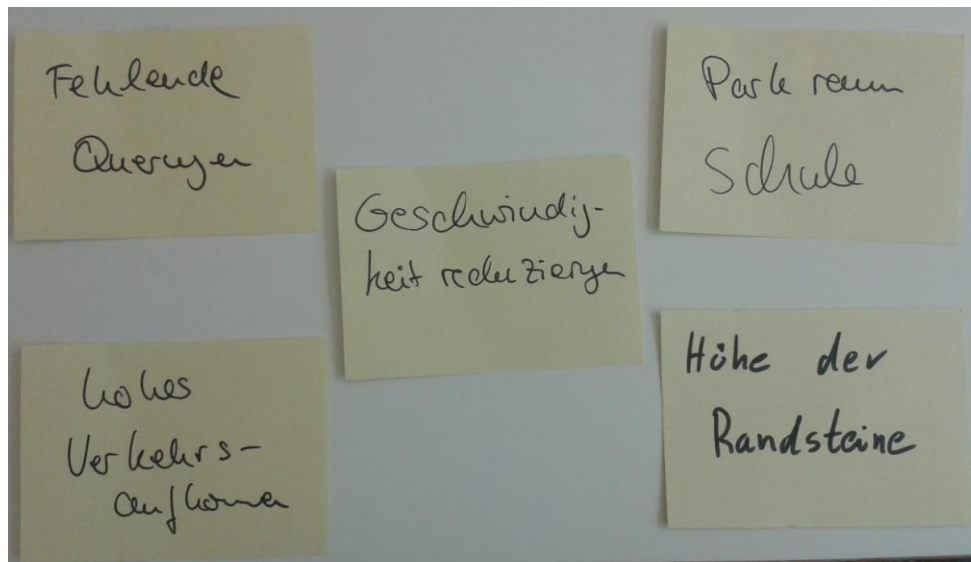 Fehlende
Querungen
Geschwindig-
keit reduzierungen
Parkraum
Schule
hohes
Verkehrs-
aufkommen
Höhe der
Randsteine